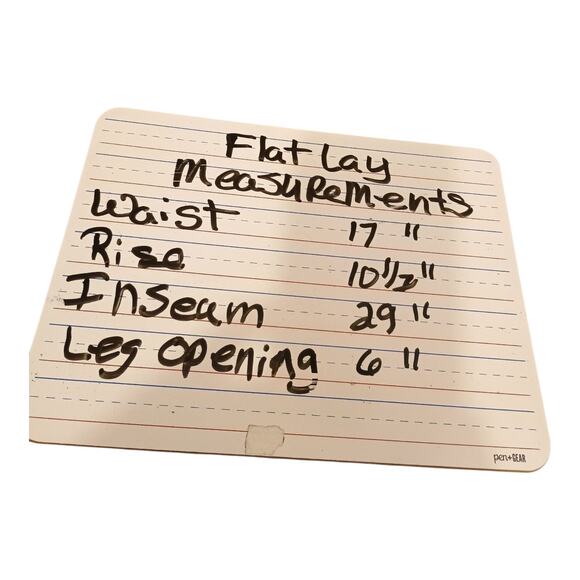 Flat Lay
Measurements
Waist 17 "
Rise 10 1/2 "
Inseam 29 "
Leg Opening 6 "
pen+GEAR